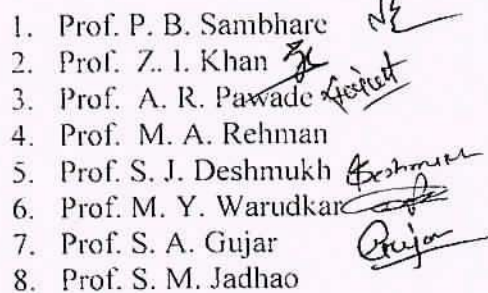 1. Prof. P. B. Sambhare
2. Prof. Z. I. Khan
3. Prof. A. R. Pawade
4. Prof. M. A. Rehman
5. Prof. S. J. Deshmukh Deshmukh
6. Prof. M. Y. Warudkar
7. Prof. S. A. Gujar Gujar
8. Prof. S. M. Jadhao